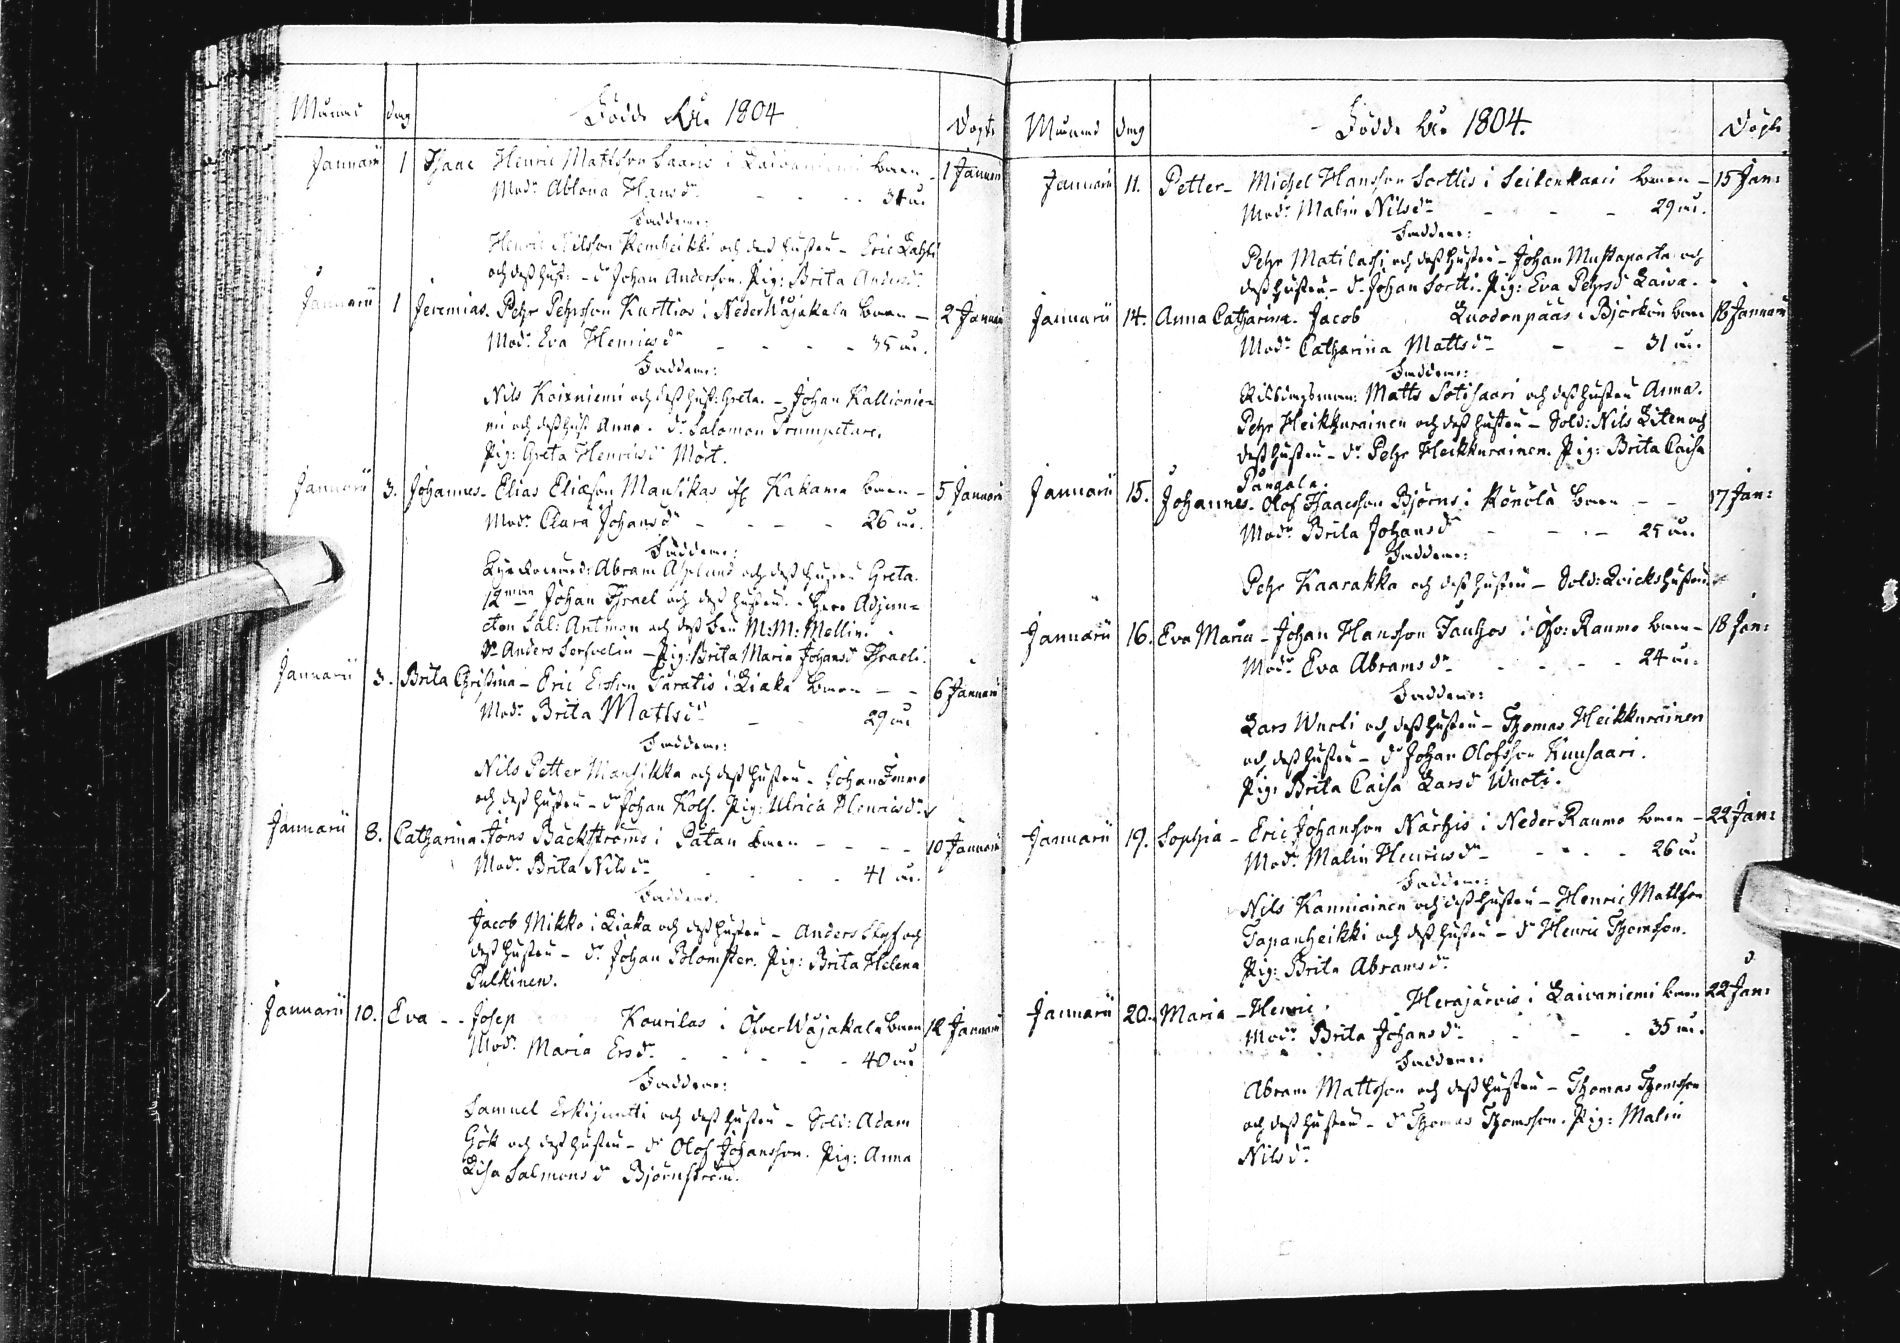 Månad dag Födde År 1804 Döpt
Januarii 1 Isaac Henric Mattsson Saaris i Laivaniemi barn - 1 Januarii
Mod: Abluna Hansdr - - - 31 år.
Faddrar:
Henric Nilsson Rembeikki och deß hustru - Eric Lahti
och deß hust: - dr Johan Andersson. Pig: Brita Andersdr
Januarii 1 Jeremias. Pehr Pehrsson Kurttios i Neder Wojakala barn - 2 Januarii
Modr Eva Henricsdr - - - - 35 år.
Faddrar:
Nils Koivuniemi och deß hust: Greta. - Johan Kallionie-
mi och deß hust Anna. dr Salomon Trumpetare.
Pig: Greta Henricsdr Mört.
Januarii 3. Johannes - Elias Eliæson Mansikas Kakama barn - 5 Januarii
Modr Clara Johansdr - - - - 26 år.
Faddrar:
Abram Asplund och deß hustru Greta.
12man Johan Israel och deß hustru. - Herr Adjunc-
ten Sal: Antman och deß fru M: M: Mellin.
Dr Anders Servelin - Pig: Brita Maria Johansdr Israeli.
Januarii 3. Brita Christina - Eric Ersson Suratis i Liaka barn - - 6 Januarii
Modr Brita Mattsdr - - 29 år
Faddrar:
Nils Petter Mansikka och deß hustru - Johan Immo
och deß hustru - dr Johan Kolf. Pig: Ulrica Henricsdr
Januarii 8. Catharina Jöns Bäckströms i Pätan barn - - - - 10 Januarii
Modr Brita Nilsdr - - - - 41 år.
Faddrar.
Jacob Mikko i Liaka och deß hustru - Anders Slyf och
deß hustru - dr Johan Blomster. Pig: Brita Helena
Pulkinen.
Januarii 10. Eva - - Josep Kourilas i Öfver Wojakala barn 12 Januarii
Modr Maria Ersdr - - - - - 40 år
Faddrar:
Samuel Erkijuntti och deß hustru - Sold: Adam
Gök och deß hustru - dr Olof Johansson. Pig: Anna
Lisa Salmonsdr Björnström.
Månad dag - Födde År 1804. Döpt
Januarii 11. Petter - Michel Hansson Sorttis i Seitenkaari barn - 15 Jan:
Modr Malin Nilsdr - - - 29 år.
Faddrar:
Pehr Matilassi och deß hustru - Johan Mustaparta och
deß hustru - dr Johan Sortti. Pig: Eva Pehrsdr Laiva.
Januarii 14. Anna Catharina. Jacob Luodonpääs i Björkön barn 16 Januarii
Modr Catharina Mattsdr - - 31 år.
Faddrar:
Riksdagsman: Matts Sotisaari och deß hustru Anna.
Pehr Heikkurainen och deß hustru - Sold: Nils Liten och
deß hustru - dr Pehr Heikkurainen. Pig: Brita Caisa
Pangala.
Januarii 15. Johannes. Olof Isaacsson Björns i Könölä barn - - 17 Jan:
Modr Brita Johansdr - - - 25 år.
Faddrar:
Pehr Kaarakka och deß hustru - Sold: Qvicks hustru
Januarii 16. Eva Maria - Johan Hansson Tauhos i Öfv: Raumo barn - 18 Jan:
Modr Eva Abramsdr - - - - 24 år.
Faddrar:
Lars Wuoti och deß hustru - Thomas Heikkurainen
och deß hustru - dr Johan Olofsson Kuusaari.
Pig: Brita Caisa Larsdr Wuoti.
Januarii 19. Sophia - Eric Johansson Närhis i Neder Raumo barn - 22 Jan:
Modr Malin Henricsdr - - - - 26 år
Faddrar:
Nils Kanniainen och deß hustru - Henric Mattsson
Tapanheikki och deß hustru - dr Henric Thomsson.
Pig: Brita Abramsdr
Januarii 20. Maria - Henric Herajärvis i Laivaniemi barn 22 Jan:
Modr Brita Johansdr - - - 35 år.
Faddrar:
Abram Mattsson och deß hustru - Thomas Thomsson
och deß hustru - dr Thomas Thomsson. Pig: Malin
Nilsdr